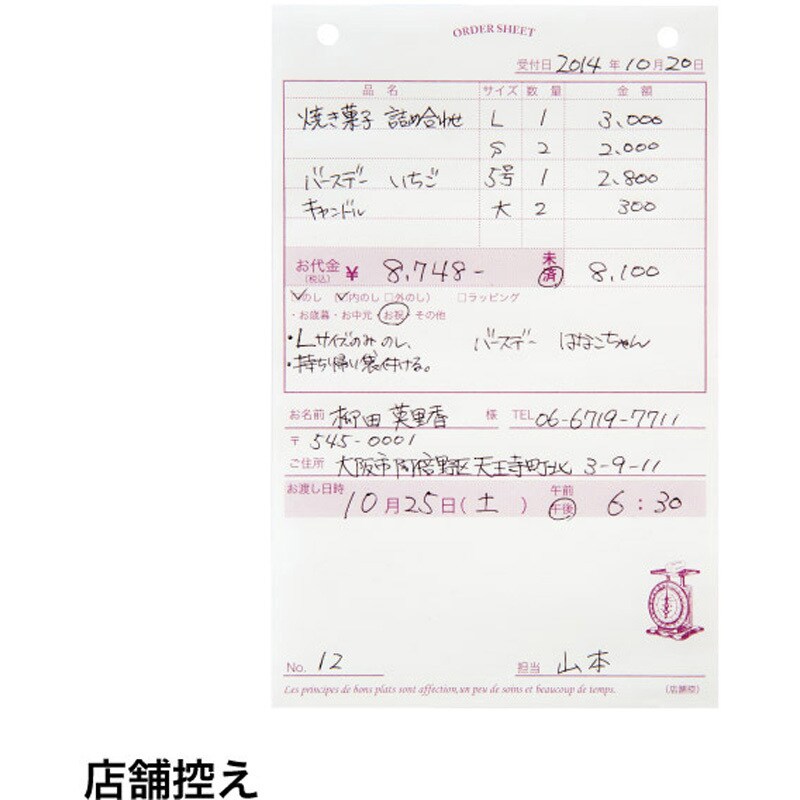 ORDER SHEET
受付日 2014 年 10 月 20 日
品 名 サイズ 数 量 金 額
焼き菓子 詰め合わせ L 1 3,000
S 2 2,000
バースデー いちご 5号 1 2,800
キャンドル 大 2 300
お代金 (税込) ¥ 8,748- 未 済 8,100
☑のし (☑内のし □外のし) □ラッピング
・お歳暮・お中元・お祝・その他
・Lサイズのみ のし、 バースデー はなこちゃん
・持ち帰り袋付ける。
お名前 柳田 英里香 様 TEL 06-6719-7711
〒 545-0001
ご住所 大阪市阿倍野区天王寺町北 3-9-11
お渡し日時 10月25日(土) 午前 午後 6:30
No. 12 担当 山本
Les principes de bons plats sont affection,un peu de soins et beaucoup de temps. (店舗控)
店舗控え